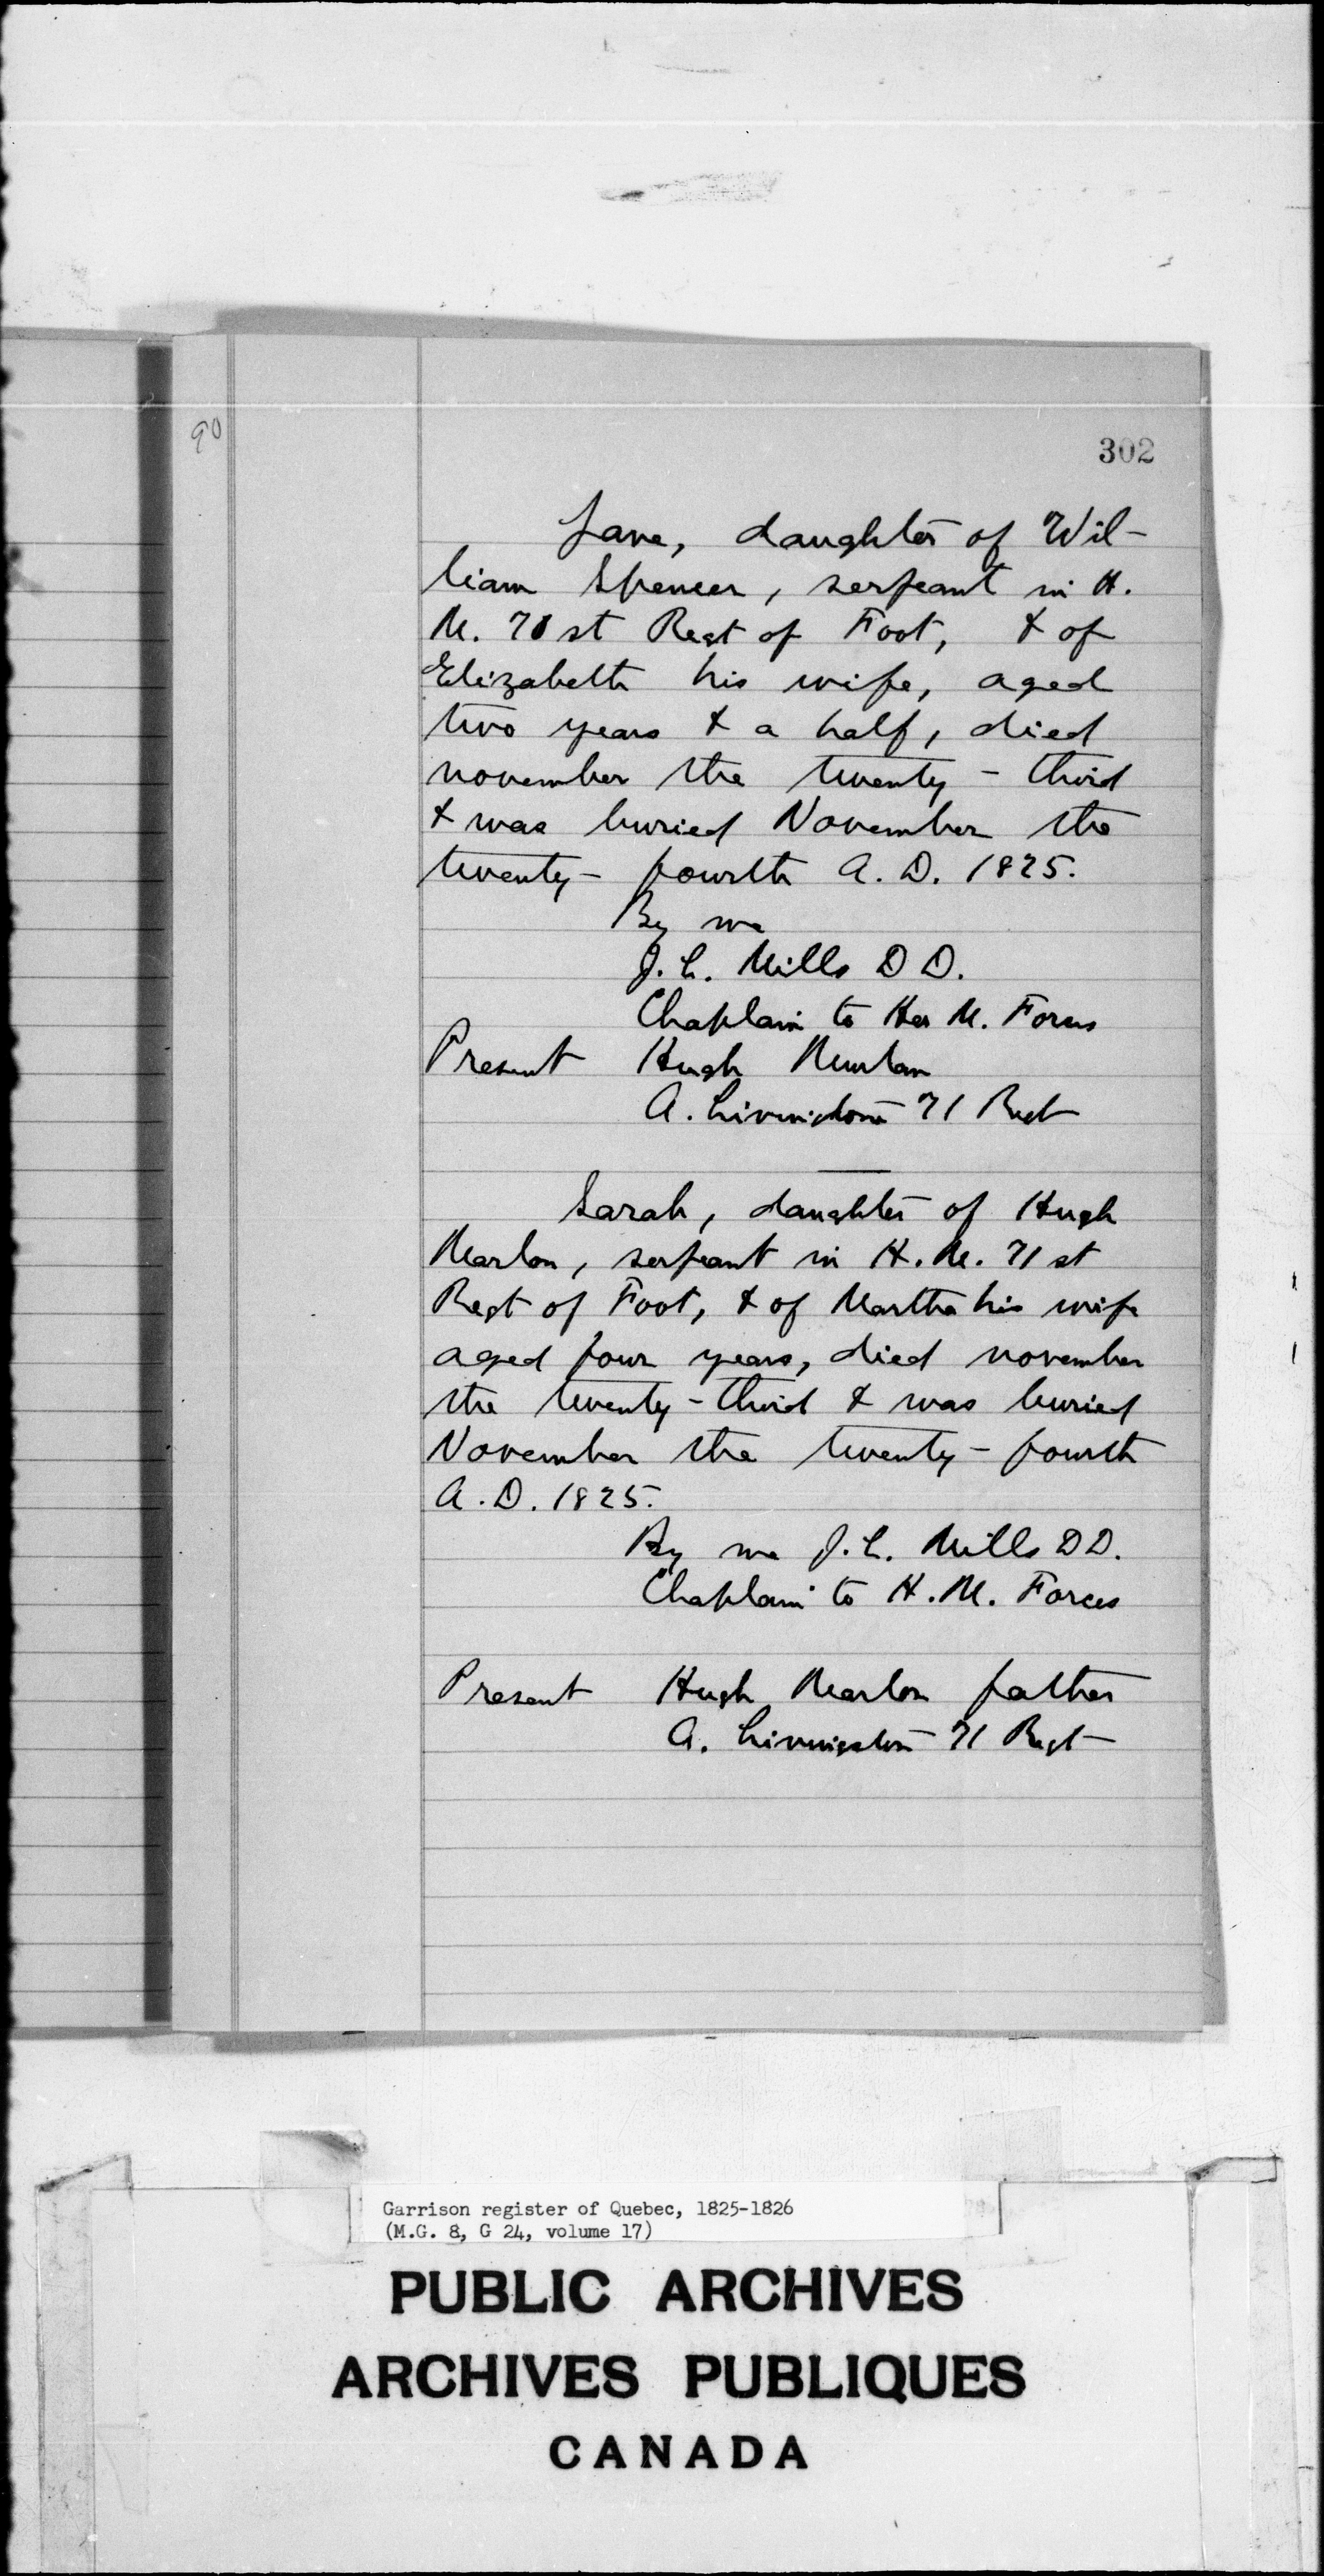 90
302
Jane, daughter of Wil-
liam Spencer, serjeant in H.
M. 71st Regt of Foot, & of
Elizabeth his wife, aged
two years & a half, died
november the twenty-third
& was buried November the
twenty-fourth A.D. 1825.
By me
J. L. Mills D D.
Chaplain to Her M. Forces
Present Hugh
A. Livingston 71 Regt
Sarah, daughter of Hugh
Marlon, serjeant in H. M. 71st
Regt of Foot, & of Martha his wife
aged four years, died november
the twenty-third & was buried
November the twenty-fourth
A.D. 1825.
By me J. L. Mills DD.
Chaplain to H. M. Forces
Present Hugh Marlon father
A. Livingston 71 Regt
Garrison register of Quebec, 1825-1826
(M.G. 8, G 24, volume 17)
PUBLIC ARCHIVES
ARCHIVES PUBLIQUES
CANADA